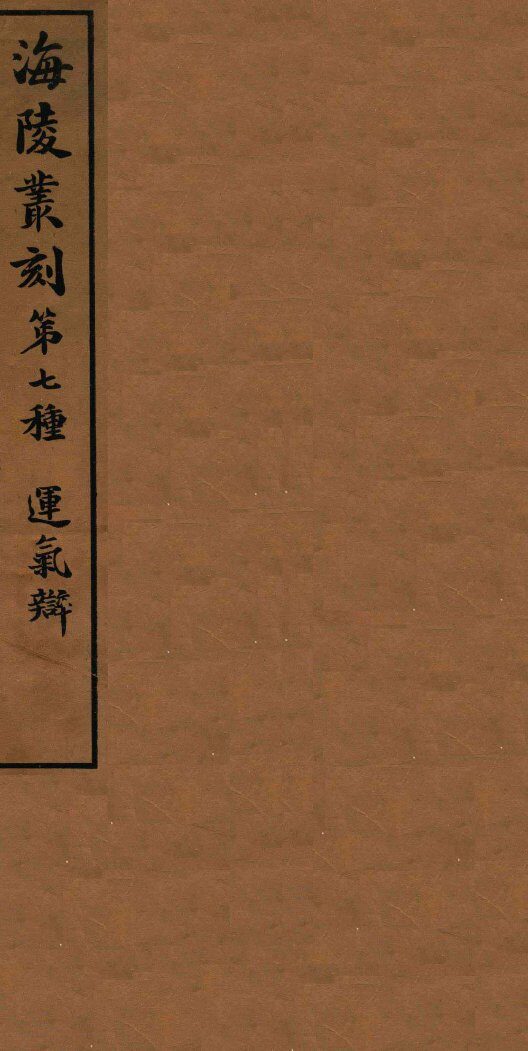 海陵叢刻第七種 運氣辯